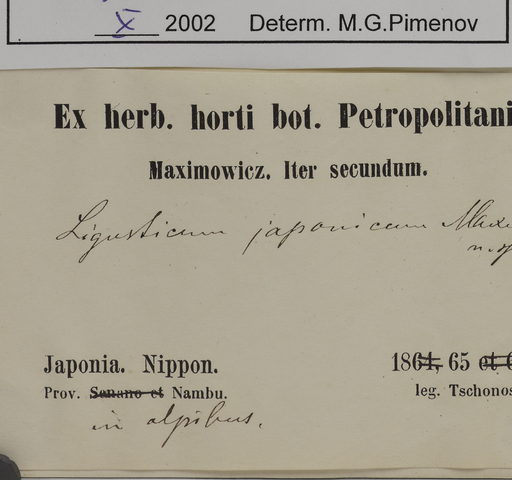 X 2002 Determ. M.G.Pimenov
Ex herb. horti bot. Petropolitani
Maximowicz. Iter secundum.
Ligusticum japonicum Max
n. sp
Japonia. Nippon. 1864, 65 et 6
Prov. Senano et Nambu. leg. Tschonos
in alpibus.